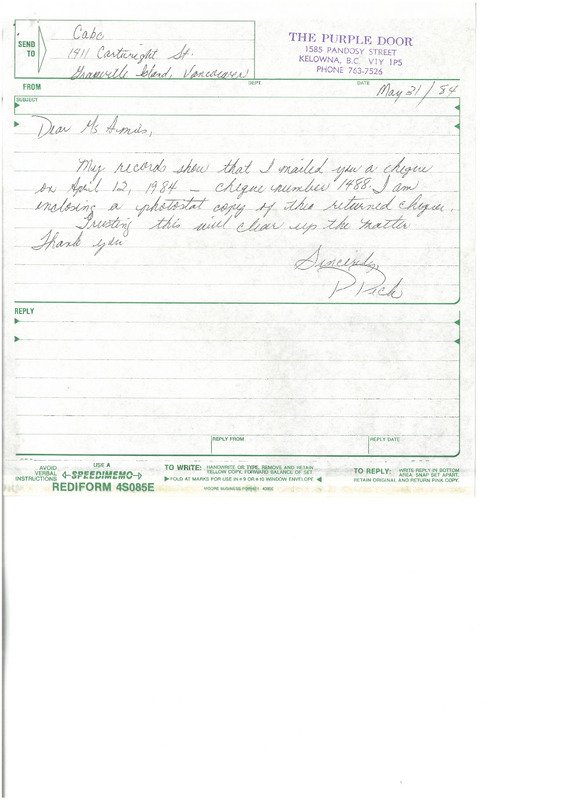 SEND TO
Cabc
1911 Cartwright St.
Granville Island, Vancouver
THE PURPLE DOOR
1585 PANDOSY STREET
KELOWNA, B.C. V1Y 1P5
PHONE 763-7526
FROM
DEPT.
DATE
May 31/84
SUBJECT
Dear Ms
My records show that I mailed you a cheque
on April 12, 1984 - cheque number 1488. I am
enclosing a photostat copy of the returned cheque.
Trusting this will clear up the matter
Thank you
Sincerely,
REPLY
REPLY FROM
REPLY DATE
AVOID VERBAL INSTRUCTIONS
USE A
SPEEDIMEMO
REDIFORM 4S085E
TO WRITE: HANDWRITE OR TYPE, REMOVE AND RETAIN
YELLOW COPY, FORWARD BALANCE OF SET.
FOLD AT MARKS FOR USE IN # 9 OR # 10 WINDOW ENVELOPE
MOORE BUSINESS FORMS
TO REPLY: WRITE REPLY IN BOTTOM
AREA. SNAP SET APART,
RETAIN ORIGINAL AND RETURN PINK COPY.